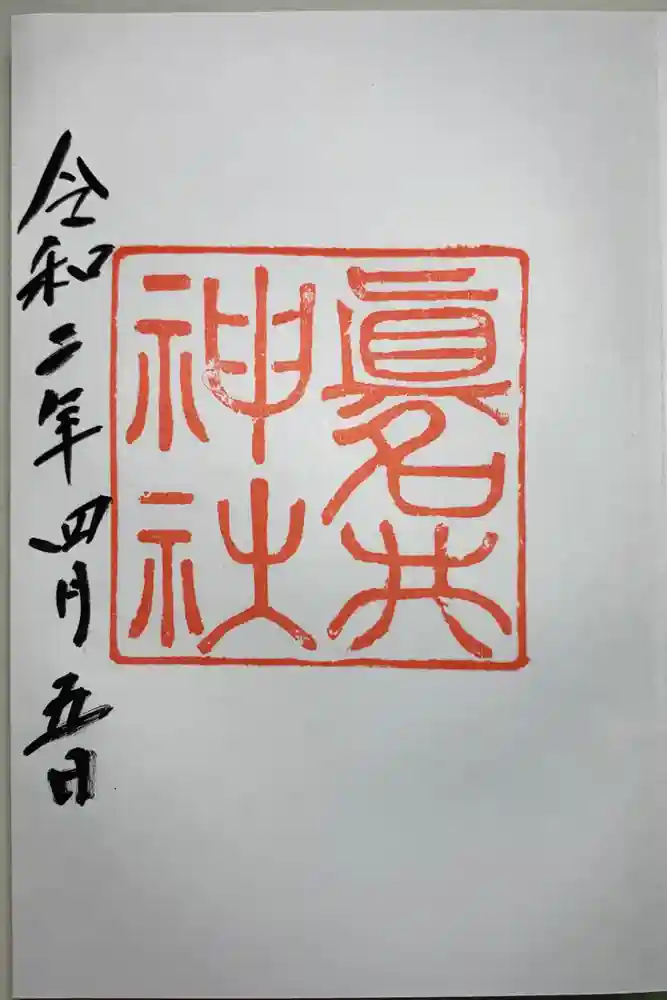 眞名井
神社
令和二年四月五日